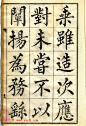 乘雖造次應
對未嘗不以
闡揚為務繇